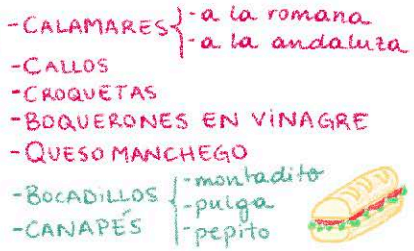 -CALAMARES{-a la romana
-a la andaluza
-CALLOS
-CROQUETAS
-BOQUERONES EN VINAGRE
-QUESO MANCHEGO
-BOCADILLOS {-montadito
-pulga
-CANAPÉS -pepito